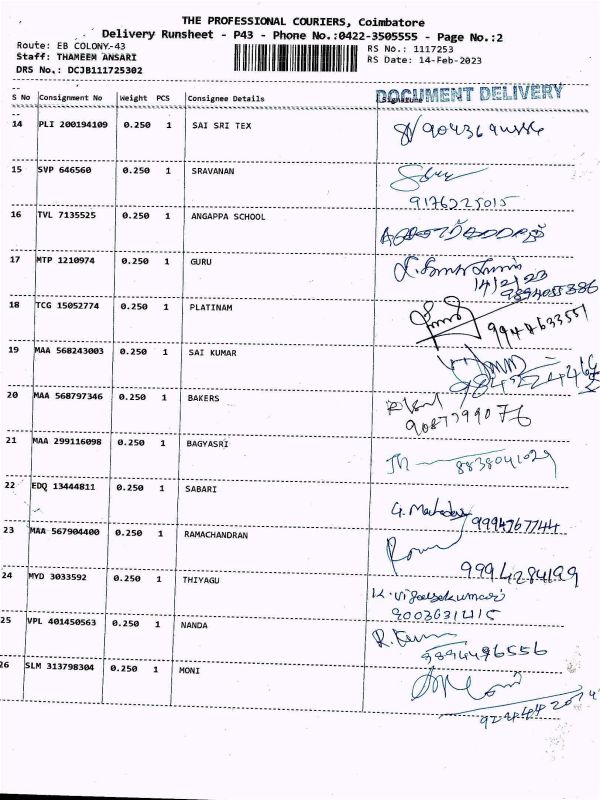 THE PROFESSIONAL COURIERS, Coimbatore
Delivery Runsheet - P43 - Phone No.:0422-3505555 - Page No.:2
Route: EB COLONY-43 RS No.: 1117253
Staff: THAMEEM ANSARI RS Date: 14-Feb-2023
DRS No.: DCJB111725302
DOCUMENT DELIVERY
S No Consignment No Weight PCS Consignee Details Signature
14 PLI 200194109 0.250 1 SAI SRI TEX
15 SVP 646560 0.250 1 SRAVANAN
9176225015
16 TVL 7135525 0.250 1 ANGAPPA SCHOOL
17 MTP 1210974 0.250 1 GURU
14/2/23
9894055386
18 TCG 15052774 0.250 1 PLATINAM
9944633551
19 MAA 568243003 0.250 1 SAI KUMAR
20 MAA 568797346 0.250 1 BAKERS
9087799076
21 MAA 299116098 0.250 1 BAGYASRI
8838041029
22 EDQ 13444811 0.250 1 SABARI
9994767744
23 MAA 567904400 0.250 1 RAMACHANDRAN
9994284199
24 MYD 3033592 0.250 1 THIYAGU
K. Vijayakumari
9003631415
25 VPL 401450563 0.250 1 NANDA
9894496556
26 SLM 313798304 0.250 1 MONI